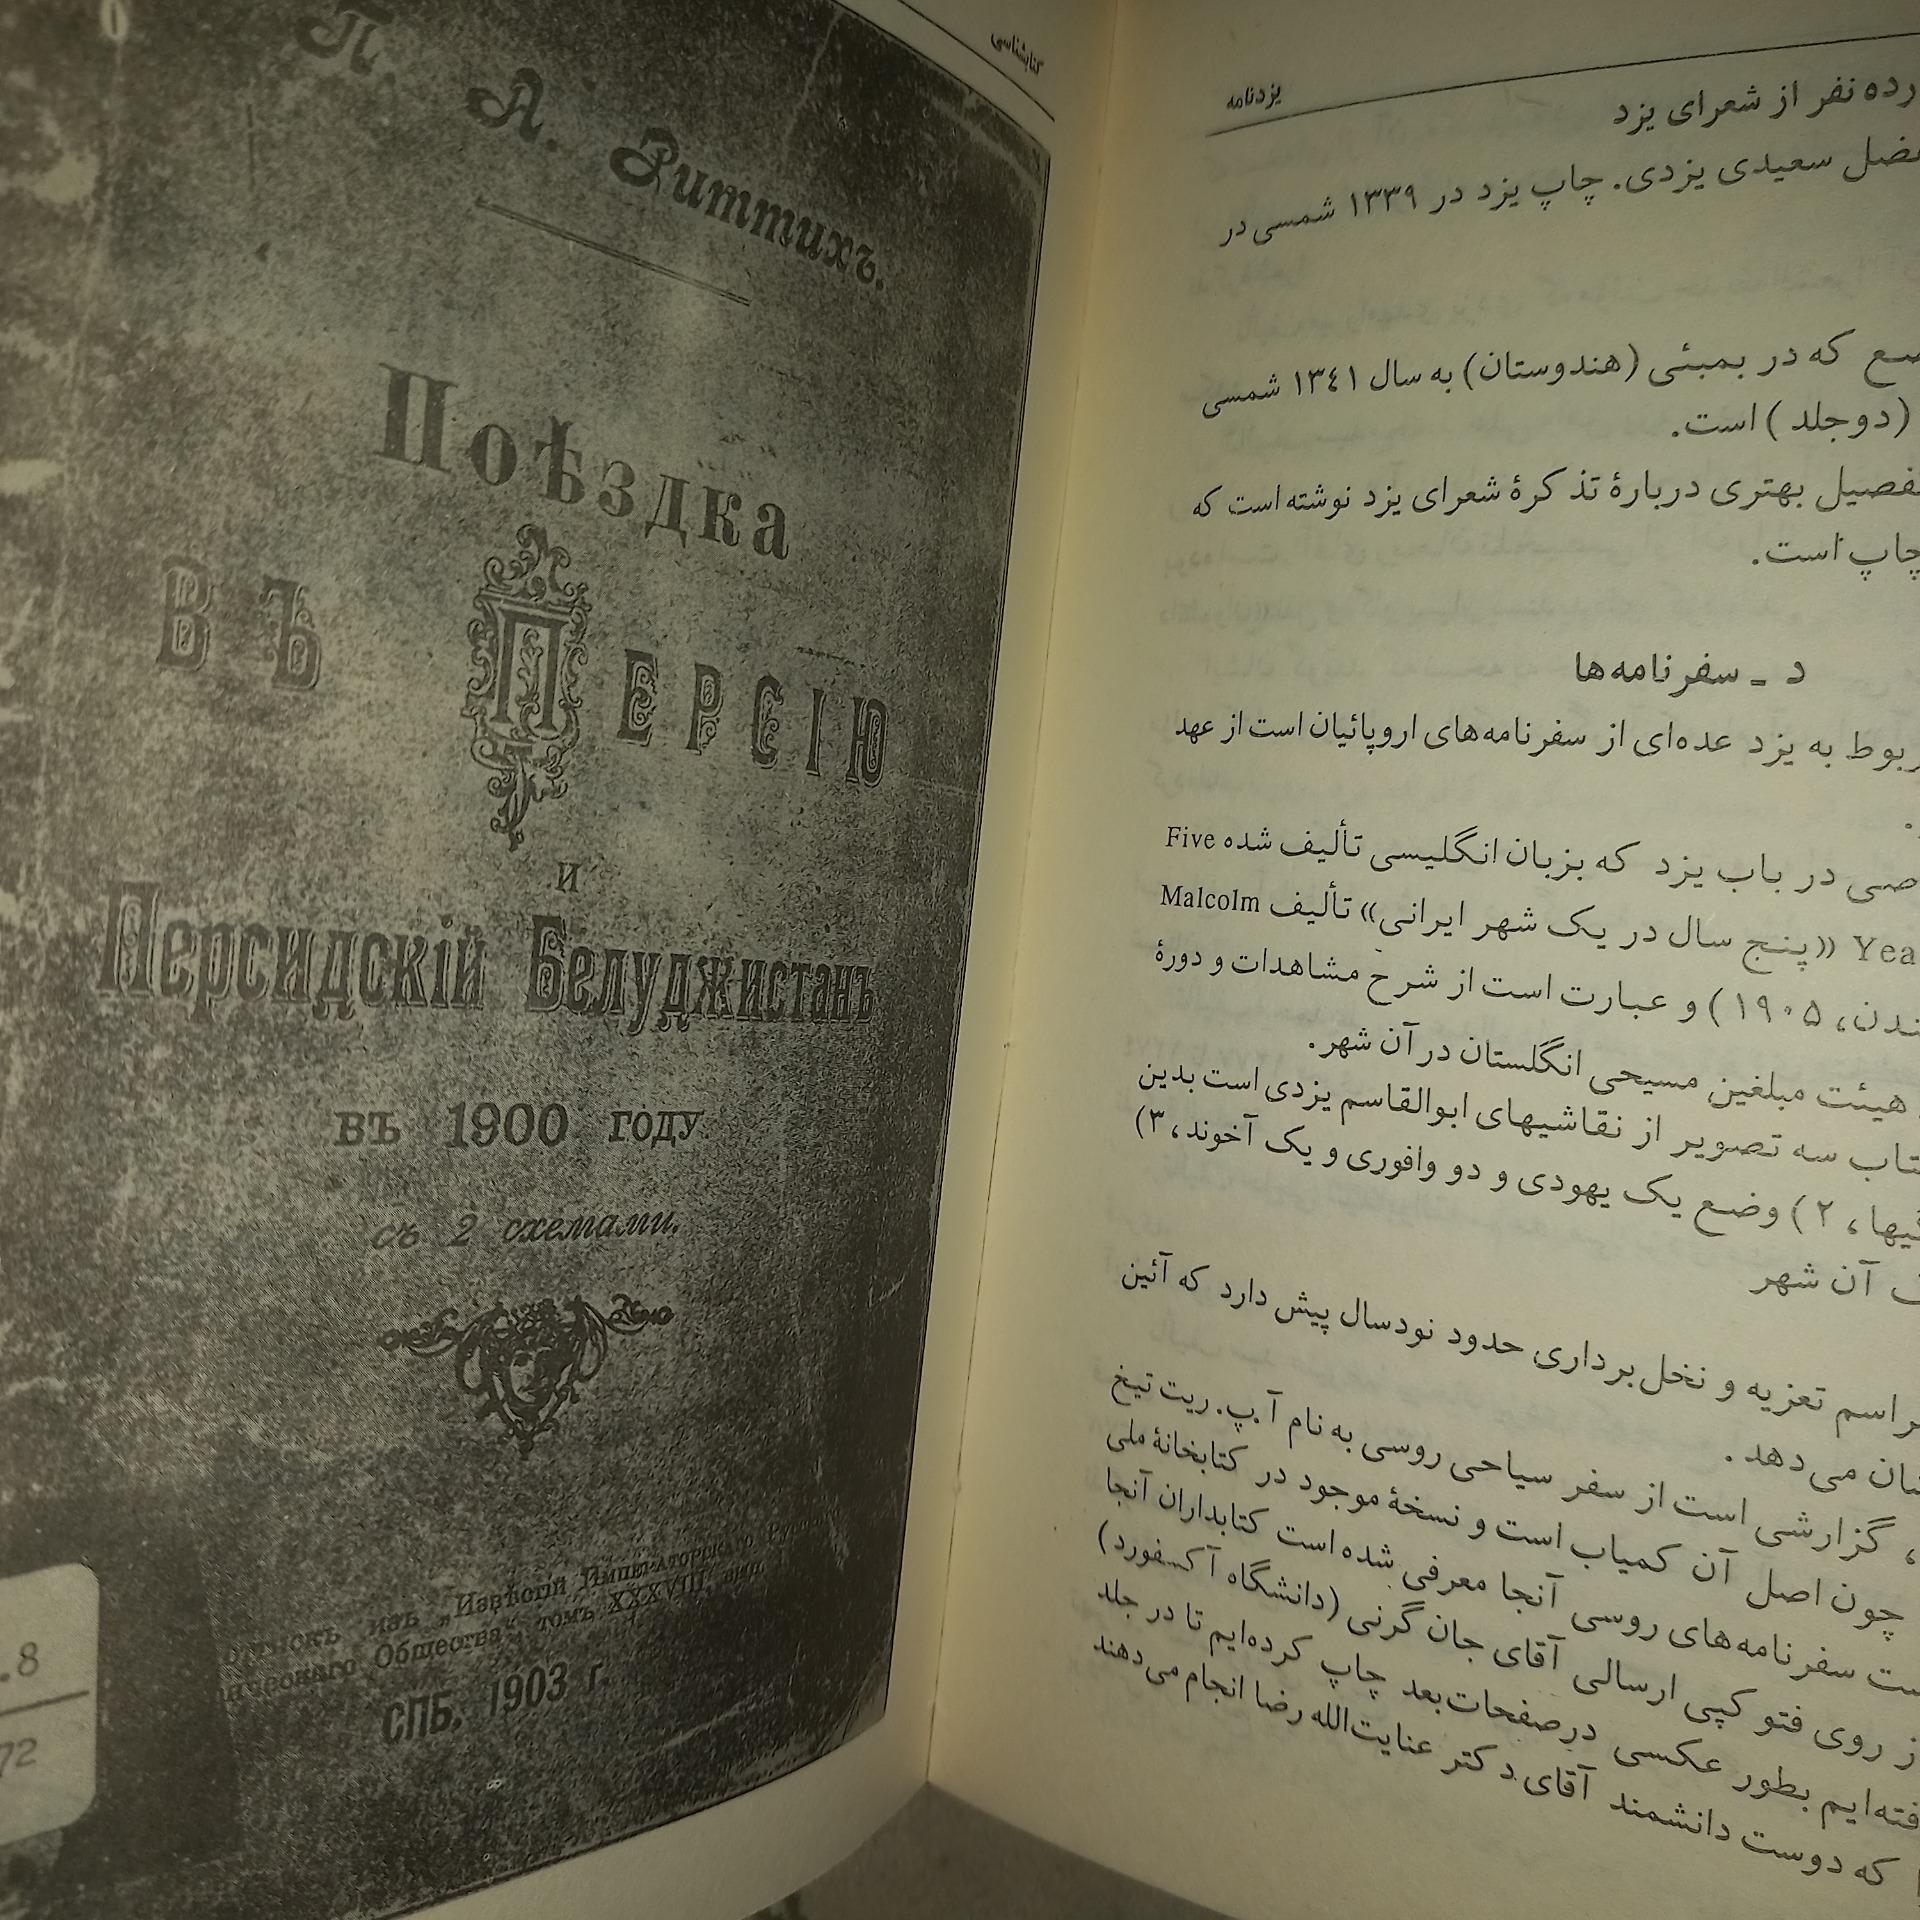 П. А. Риттихъ.
Поѣздка
ВЪ ПЕРСІЮ
И
Персидскій Белуджистанъ
въ 1900 году
съ 2 схемами.
изъ „Извѣстій Императорскаго
Общества“, томъ XXXVIII,
СПБ, 1903 г.
.8
72
کتابشناسی
یزدنامه
نفر از شعرای یزد
سعیدی یزدی. چاپ یزد در ۱۳۳۹ شمسی در
که در بمبئی (هندوستان) به سال ۱۳٤۱ شمسی
(دوجلد) است.
بهتری دربارهٔ تذکرهٔ شعرای یزد نوشته است که
چاپ است.
د ـ سفرنامه‌ها
به یزد عده‌ای از سفرنامه‌های اروپائیان است از عهد
در باب یزد که بزبان انگلیسی تألیف شده Five
«پنج سال در یک شهر ایرانی» تألیف Malcolm
۱۹۰۵) و عبارت است از شرح مشاهدات و دورهٔ
هیئت مبلغین مسیحی انگلستان در آن شهر.
سه تصویر از نقاشیهای ابوالقاسم یزدی است بدین
۲) وضع یک یهودی و دو وافوری و یک آخوند، ۳)
آن شهر
تعزیه و نخل برداری حدود نودسال پیش دارد که آئین
می‌دهد.
گزارشی است از سفر سیاحی روسی به نام آ.پ. ریت تیخ
چون اصل آن کمیاب است و نسخهٔ موجود در کتابخانهٔ ملی
سفرنامه‌های روسی آنجا معرفی شده است کتابداران آنجا
روی فتو کپی ارسالی آقای جان گرنی (دانشگاه آکسفورد)
بطور عکسی درصفحات بعد چاپ کرده‌ایم تا در جلد
که دوست دانشمند آقای دکتر عنایت‌الله رضا انجام می‌دهند